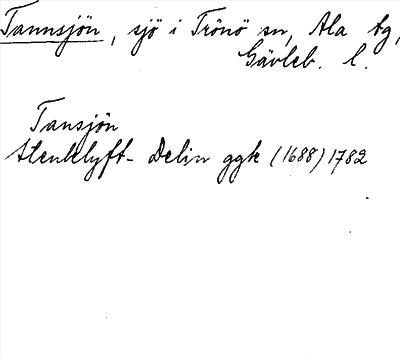 Tannsjön, sjö i Trönö sn, Ala tg,
Gävleb. l.
Tansjön
Stenklyft- Delin ggk (1688) 1782